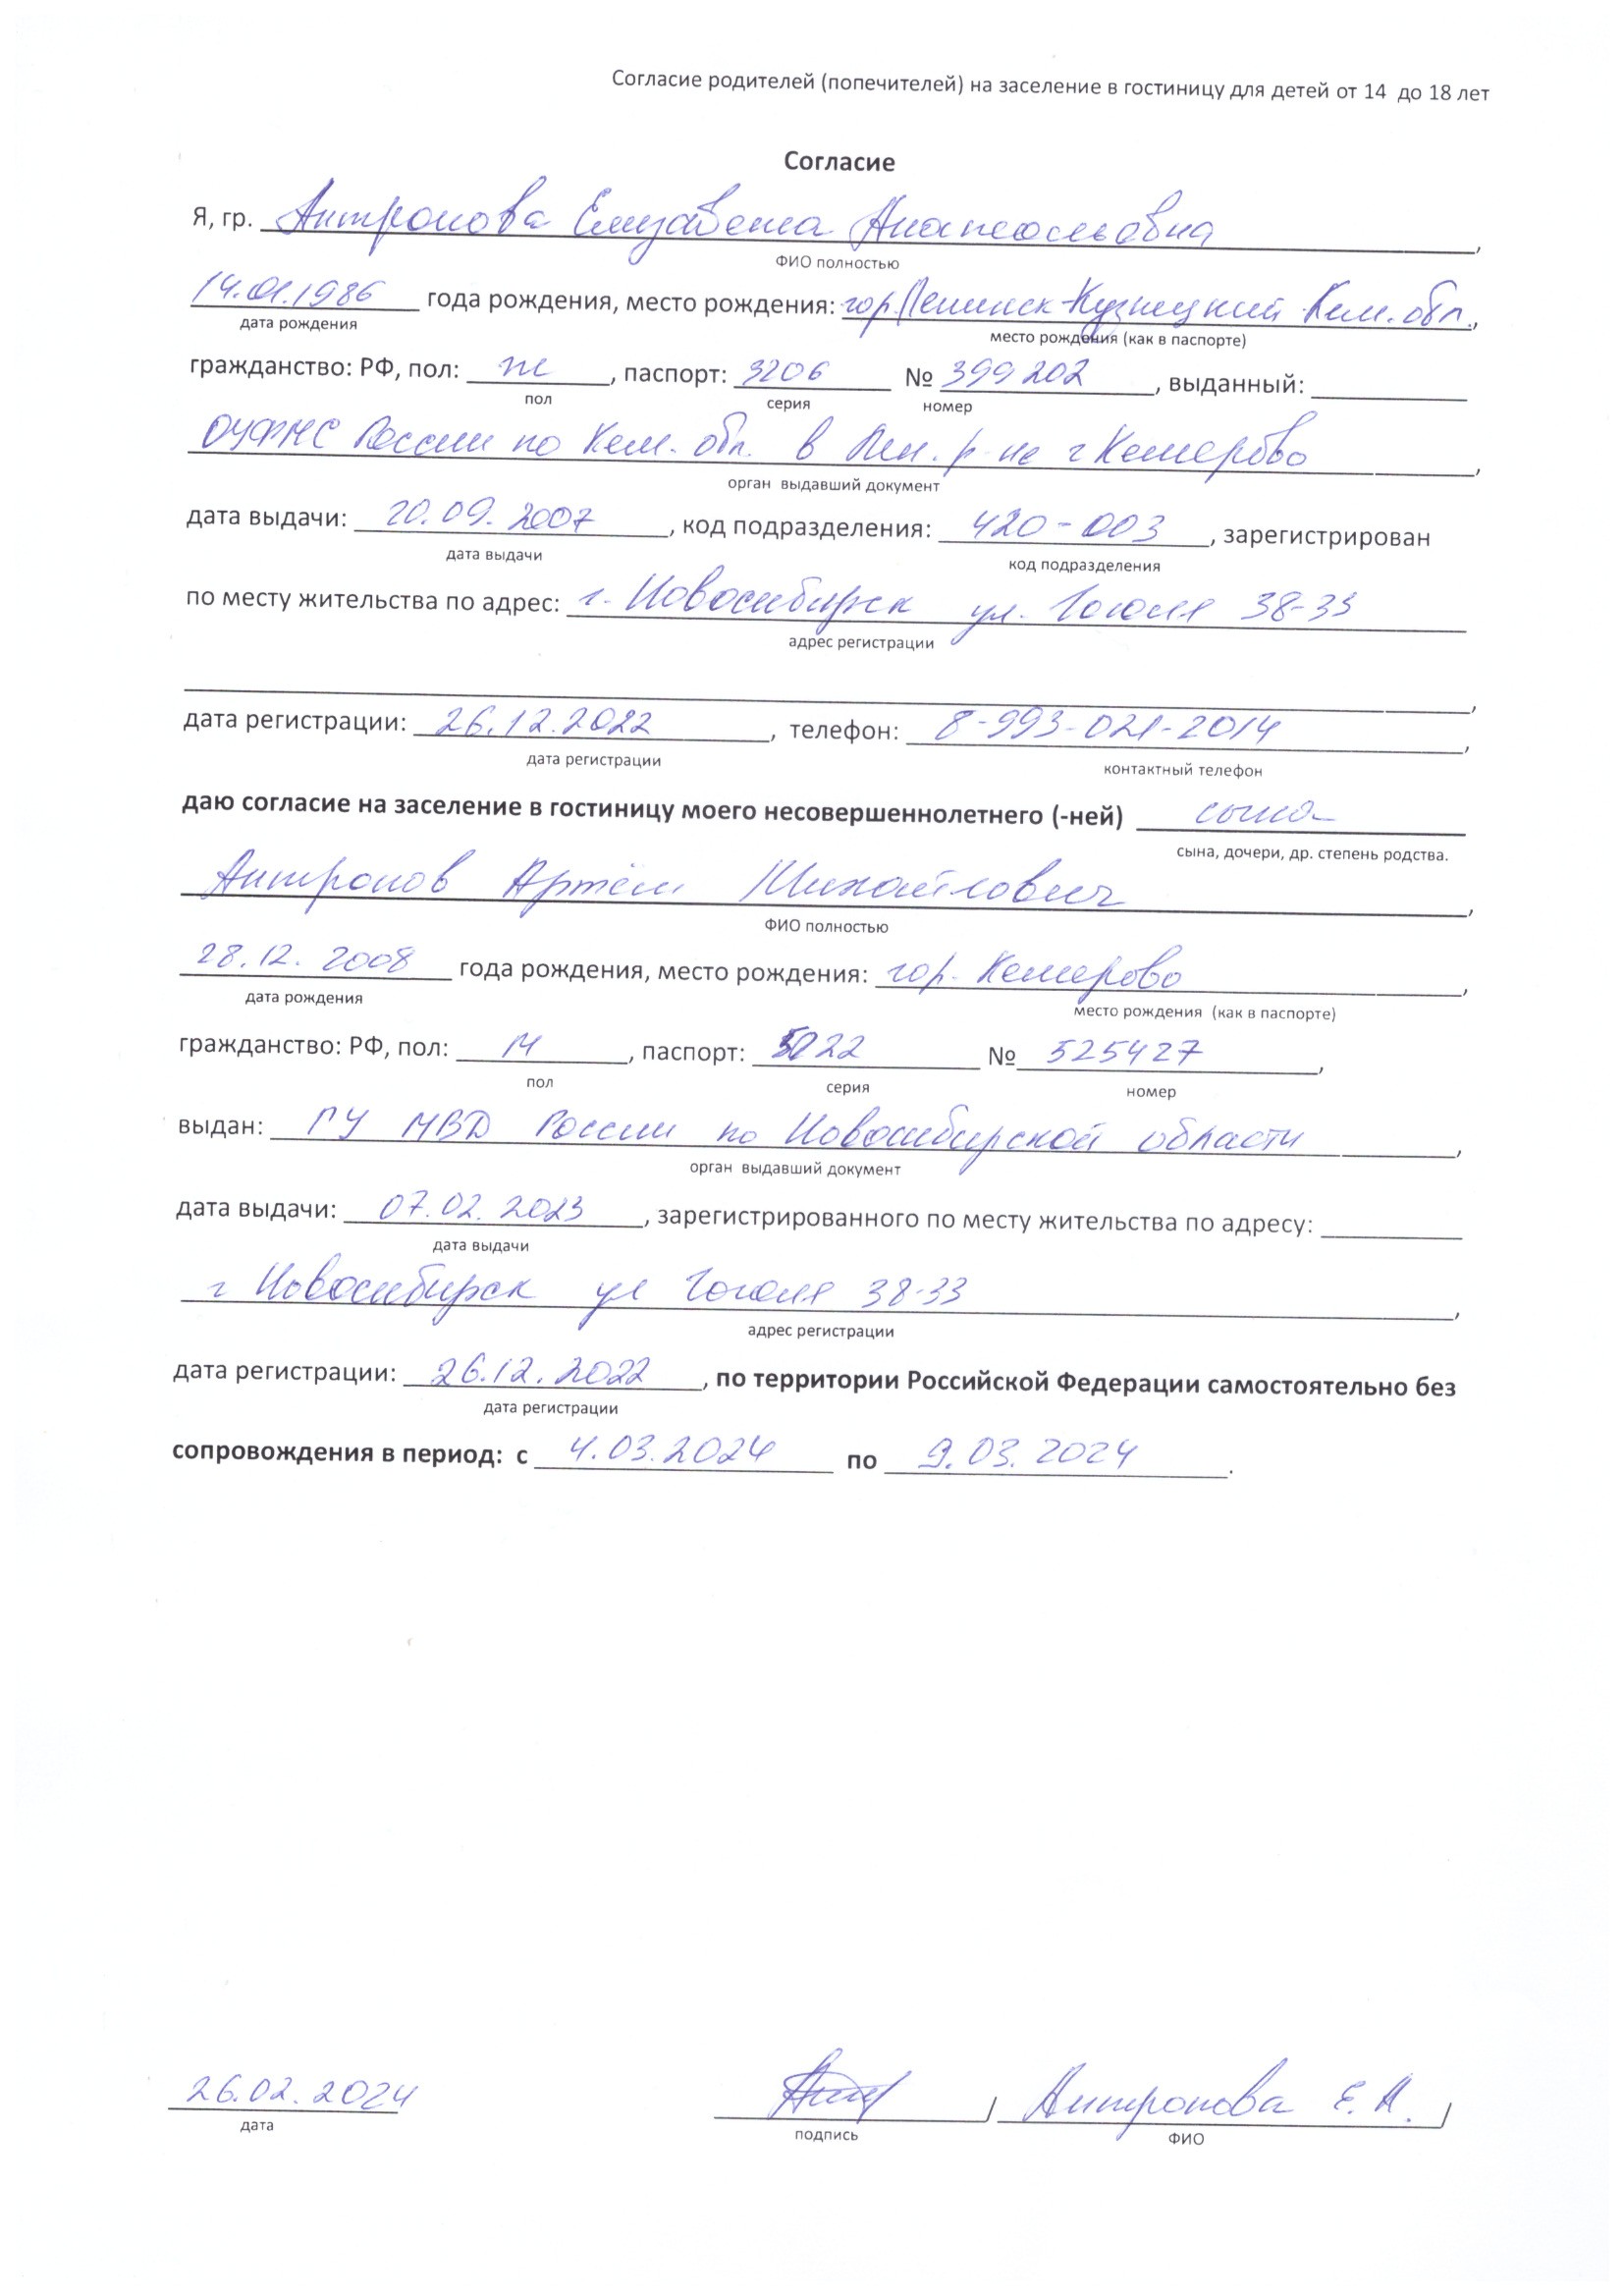 Согласие родителей (попечителей) на заселение в гостиницу для детей от 14 до 18 лет
Согласие
Я, гр. Антропова Елизавета Анатольевна,
ФИО полностью
14.01.1986 года рождения, место рождения: гор. Ленинск-Кузнецкий Кем. обл.,
дата рождения место рождения (как в паспорте)
гражданство: РФ, пол: ж, паспорт: 3206 № 399202, выданный:
пол серия номер
ОУФМС России по Кем. обл. в Лен. р-не г Кемерово,
орган выдавший документ
дата выдачи: 20.09.2007, код подразделения: 420-003, зарегистрирован
дата выдачи код подразделения
по месту жительства по адрес: г. Новосибирск ул. Гоголя 38-33
адрес регистрации
,
дата регистрации: 26.12.2022, телефон: 8-993-021-2014,
дата регистрации контактный телефон
даю согласие на заселение в гостиницу моего несовершеннолетнего (-ней) сына
сына, дочери, др. степень родства.
Антропов Артём Михайлович,
ФИО полностью
28.12.2008 года рождения, место рождения: гор. Кемерово,
дата рождения место рождения (как в паспорте)
гражданство: РФ, пол: М, паспорт: 5022 № 525427,
пол серия номер
выдан: ГУ МВД России по Новосибирской области,
орган выдавший документ
дата выдачи: 07.02.2023, зарегистрированного по месту жительства по адресу:
дата выдачи
г Новосибирск ул Гоголя 38-33,
адрес регистрации
дата регистрации: 26.12.2022, по территории Российской Федерации самостоятельно без
дата регистрации
сопровождения в период: с 4.03.2024 по 9.03.2024.
26.02.2024 / Антропова Е. А. /
дата подпись ФИО